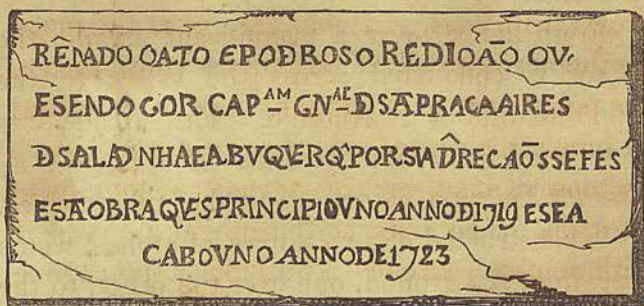 RÊNADO OATO EPODROSO REDIOAÕ OV.
ESENDO GOR CAP AM GN AL DSÃPRACAAIRES
DSALADNHAEABVQVERQ̃PORSVADR̂ECAÕSSEFES
ESTAOBRAQVESPRINCIPIOVNOANNODI719 ESEA
CABOVNOANNODE1723